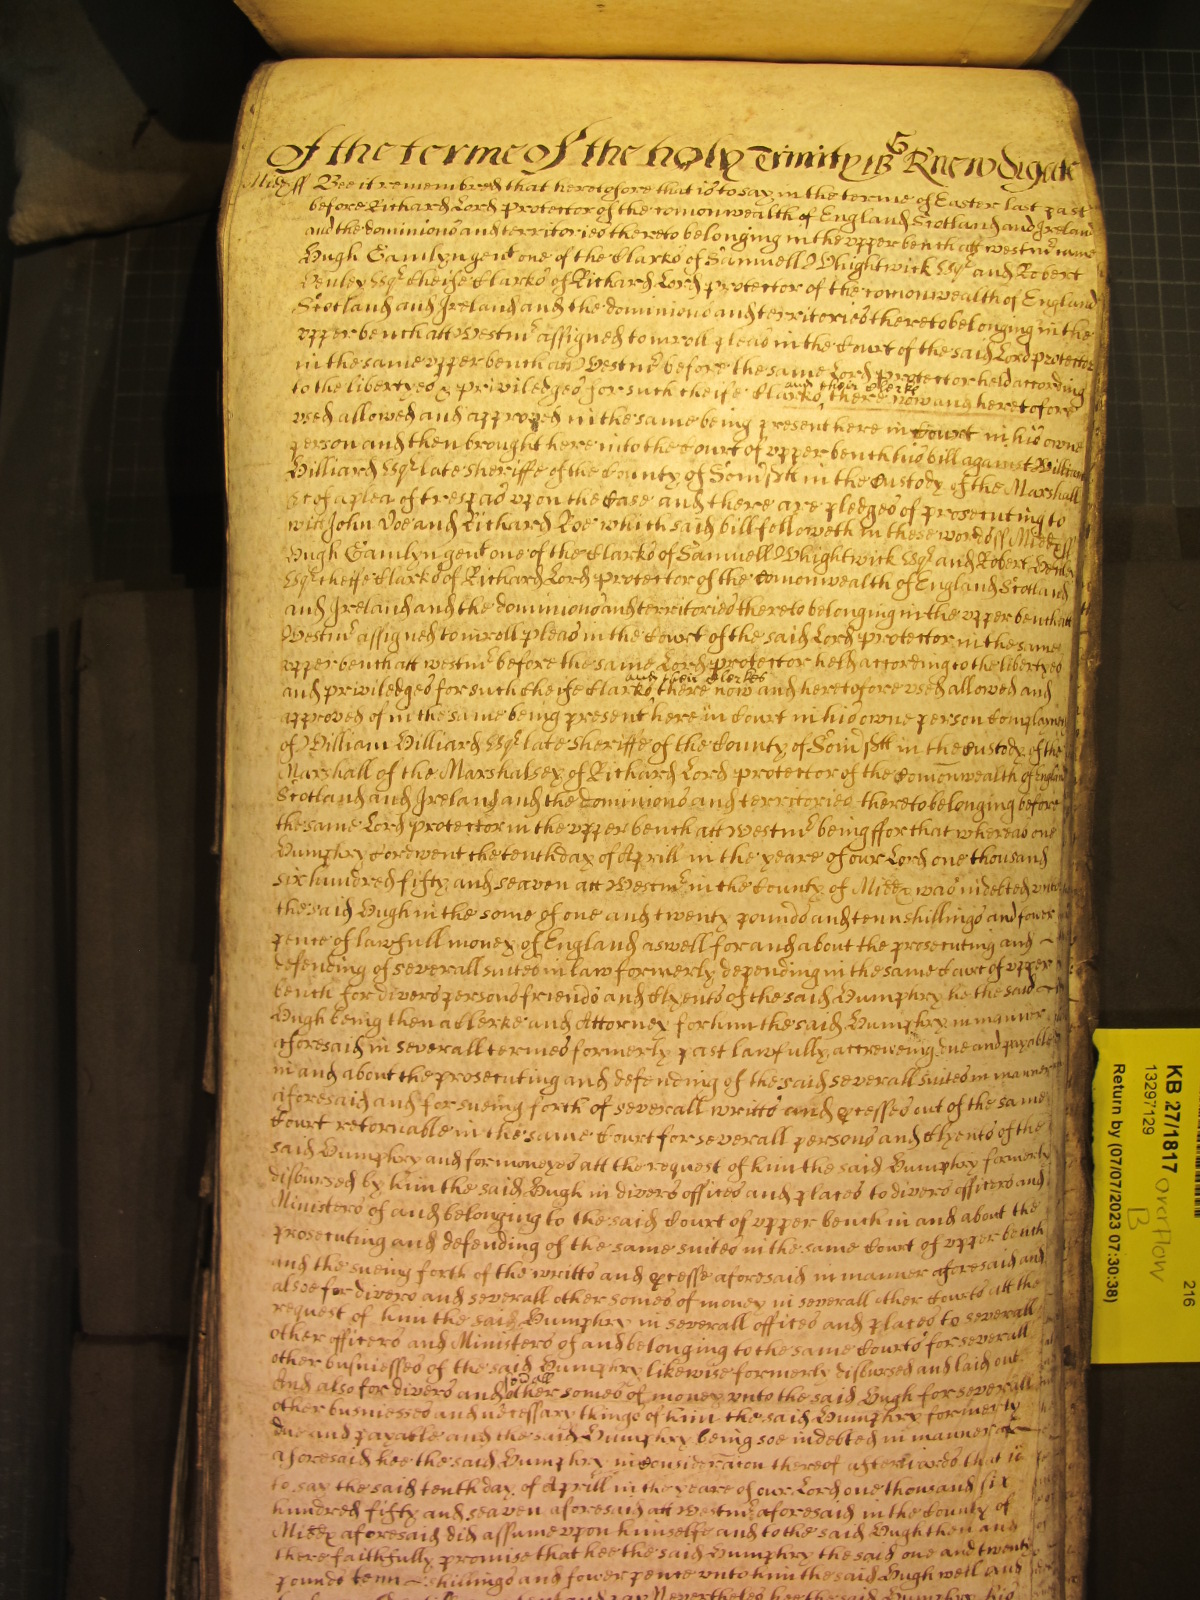 Of the terme of the holy Trinity 1659 Knewdigate
Midd ff Bee it remembred that heretofore that is to say in the terme of Easter last past
before Richard Lord Protector of the comonwealth of England Scotland and Ireland
and the dominions and territories thereto belonging in the upper bench att westmr came
Hugh Hamlyn gent one of the Clarks of Samuell Whightwick Esqr and Robert
Henley Esqr cheife Clarks of Richard Lord protector of the comonwealth of England
Scotland and Ireland and the dominions and territories thereto belonging in the
upper bench att Westmr assigned to inroll pleas in the Court of the said Lord protector
in the same upper bench att Westmr before the same Lord protector held according
to the libertyes & priviledges for such cheife Clarks and their Clerks there now and heretofore
used allowed and approved in the same being present here in Court in his owne
person and then brought here into the Court of upper bench his bill against William
Hilliard Esqr late sheriffe of the County of Somsett in the Custody of the Marshall
&c of a plea of trespas upon the Case and there are pledges of prosecuting to
witt John Doe and Richard Roe which said bill followeth in these words ss Midd ff
Hugh Hamlyn gent one of the Clarks of Samuell Whightwick Esqr and Robert Henley
Esqr cheife Clarks of Richard Lord protector of the Comonwealth of England Scotland
and Ireland and the dominions and territories thereto belonging in the upper bench att
Westmr assigned to inroll pleas in the Court of the said Lord protector in the same
upper bench att westmr before the same Lord protector held according to the libertyes
and priviledges for such cheife Clarks and their Clerkes there now and heretofore used allowed and
approved of in the same being present here in Court in his owne person Complaines
of William Hilliard Esqr late sheriffe of the County of Somsett in the Custody of the
Marshall of the Marshalsey of Richard Lord protector of the Comonwealth of England
Scotland and Ireland and the dominions and territories thereto belonging before
the same Lord protector in the upper bench att Westmr being ffor that whereas one
Humphry Cordwent the tenth day of Aprill in the yeare of our Lord one thousand
six hundred fifty and seaven att Westmr in the County of Midd was indebted unto
the said Hugh in the some of one and twenty pounds and tenn shillings and fower
pence of lawfull money of England aswell for and about the prosecuting and
defending of severall suites in law formerly depending in the same Court of upper
bench for divers persons friends and Clyents of the said Humphry he the said
Hugh being then a Clerke and Attorney for him the said Humphry in manner
aforesaid in severall termes formerly past lawfully accreweing due and payable
in and about the prosecuting and defending of the said severall suites in manner
aforesaid and for sueing forth of severall writts and pcesses out of the same
Court retornable in the same Court for severall persons and Clyents of the
said Humphry and for moneyes att the request of him the said Humphry formerly
disbursed by him the said Hugh in divers offices and places to divers officers and
Ministers of and belonging to the said Court of upper bench in and about the
prosecuting and defending of the same suites in the same Court of upper bench
and the sueing forth of the writts and pcesse aforesaid in manner aforesaid and
alsoe for divers and severall other somes of money in severall other Courts att the
request of him the said Humphry in severall offices and places to severall
other officers and Ministers of and belonging to the same Courts for severall
other busniesses of the said Humphry likewise formerly disbursed and laid out
And also for divers and other somes of money unto the said Hugh for severall
other busniesses and necessary things of him the said Humphry formerly
due and payable and the said Humphry being soe indebted in manner
aforesaid hee the said Humphry in consideracon thereof afterwards that is
to say the said tenth day of Aprill in the yeare of our Lord one thousand six
hundred fifty and seaven aforesaid att Westmr aforesaid in the County of
Midd aforesaid did assume upon himselfe and to the said Hugh then and
there faithfully promise that hee the said Humphry the said one and twenty
pounds tenn shillings and fower pence unto him the said Hugh well and
Nevertheles hee the said Humphry his
KB 27/1817 overflow
B
13297129
216
Return by (07/07/2023 07:30:38)